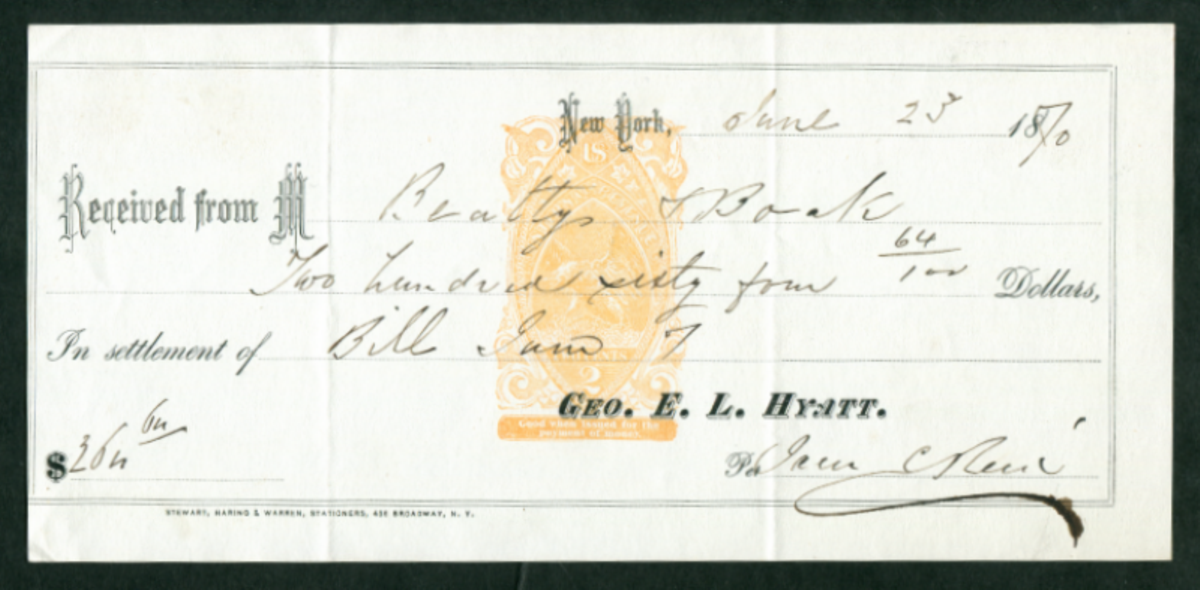 New York, June 23 1870
Received from M Beatty & Boak
Two hundred sixty four 64/100 Dollars,
In settlement of Bill June 7
U S
2
GEO. E. L. HYATT.
Good when issued for the
payment of money.
$ 264 64
Per
STEWART, HARING & WARREN, STATIONERS, 430 BROADWAY, N. Y.